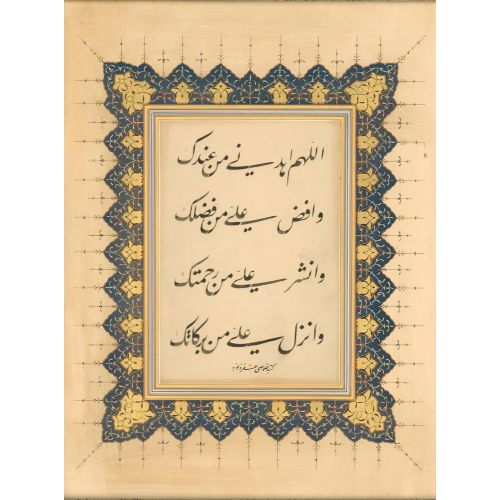 اللهم اهدنے من عندک
وافض علے من فضلک
وانشر علے من رحمتک
وانزل علے من برکاتک